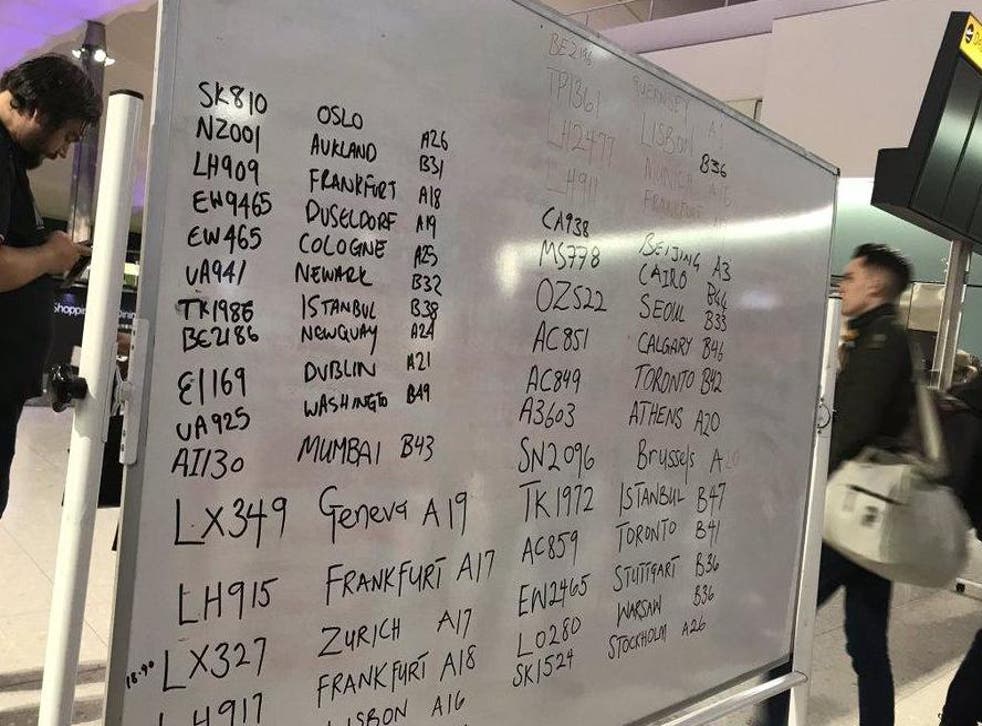 SK810 OSLO A26
NZ001 AUKLAND B31
LH909 FRANKFURT A18
EW9465 DUSELDORF A19
EW465 COLOGNE A25
UA941 NEWARK B32
TK1986 ISTANBUL B38
BE2186 NEWQUAY A24
EI169 DUBLIN A21
UA925 WASHINGTO B49
AI130 MUMBAI B43
LX349 Geneva A19
LH915 FRANKFURT A17
18.90 LX327 ZURICH A17
LH917 FRANKFURT A18
LISBON A16
GUERNSEY
TP1361 LISBON
LH2477 MUNICH B36
LH911 FRANKFURT
CA938 BEIJING A3
MS778 CAIRO B44
OZ522 SEOUL B33
AC851 CALGARY B46
AC849 TORONTO B42
A3603 ATHENS A20
SN2096 Brussels A20
TK1972 ISTANBUL B47
AC859 TORONTO B41
EW2465 STUTTGART B36
LO280 WARSAW B36
SK1524 STOCKHOLM A26